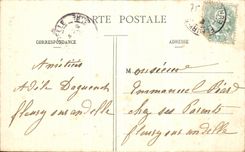 CARTE POSTALE
CORRESPONDANCE
ADRESSE
Amitiés
Adèle Daguenet
fleury sur andelle
Monsieur
Emmanuel
chez ses Parents
fleury sur andelle